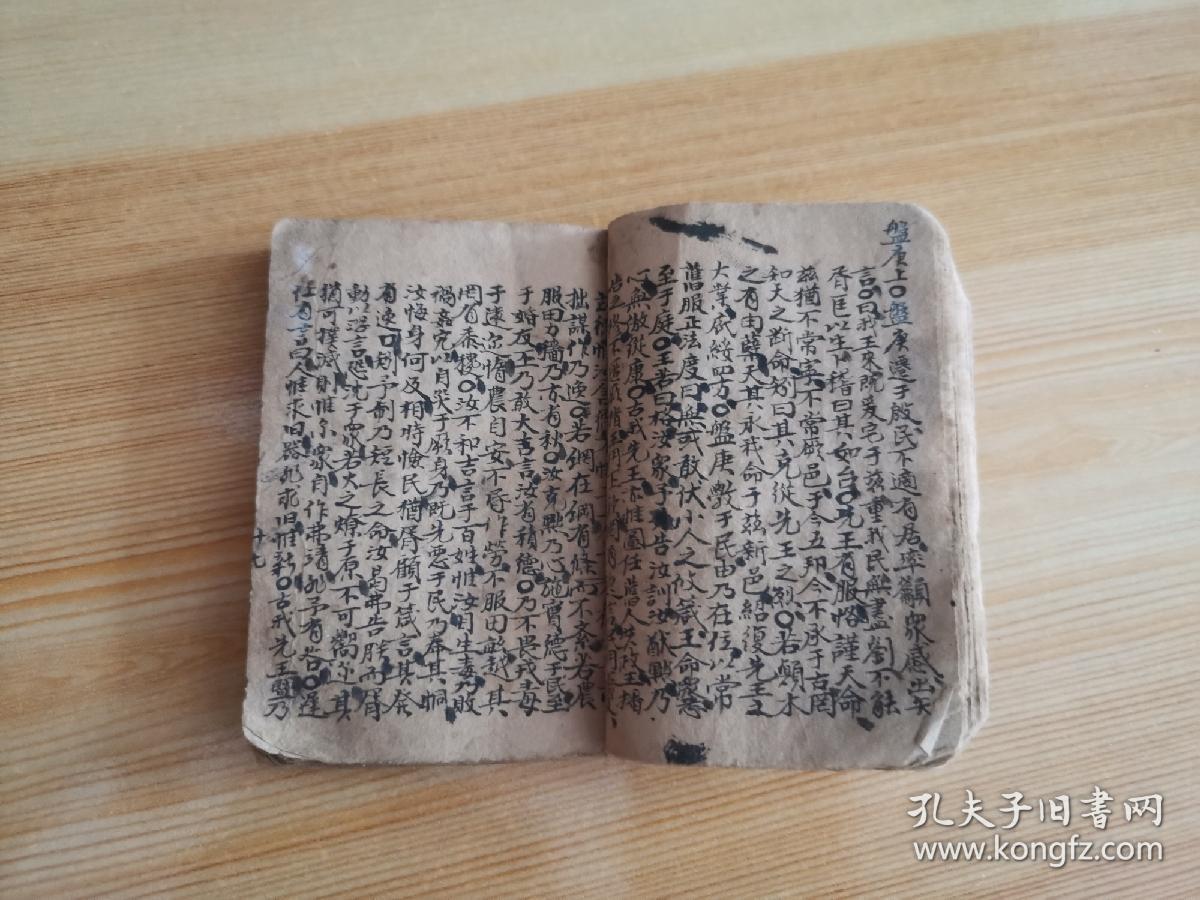 盤庚上〇盤庚遷于殷民不適有居率籲衆慼出矢
言〇曰我王來既爰宅于茲重我民無盡劉不能
胥匡以生卜稽曰其如台〇先王有服恪謹天命
茲猶不常寧不常厥邑于今五邦今不承于古罔
知天之断命矧曰其克從先王之烈〇若顛木
之有由蘖天其永我命于茲新邑紹復先王之
大業厎綏四方〇盤庚斆于民由乃在位以常
舊服正法度曰無或敢伏小人之攸箴王命衆悉
至于庭〇王若曰格汝衆予告汝訓汝猷黜乃
心無傲從康〇古我先王亦惟圖任舊人共政王播
拙謀作乃逸〇若網在綱有條而不紊若農
服田力穡乃亦有秋〇汝克黜乃心施實德于民至
于婚友丕乃敢大言言汝有積德〇乃不畏戎毒
于遠迩惰農自安不昏作勞不服田畝越其
罔有黍稷〇汝不和吉言于百姓惟汝自生毒乃敗
禍姦宄以自災于厥身乃既先惡于民乃奉其恫
汝悔身何及相時憸民猶胥顧于箴言其發
有逸口矧予制乃短長之命汝曷弗告朕而胥
動以浮言恐沈于衆若火之燎于原不可嚮迩其
猶可撲滅則惟尔衆自作弗靖非予有咎〇遲
任有言曰人惟求旧器非求旧惟新〇古我先王暨乃
十九
孔夫子旧书网
www.kongfz.com